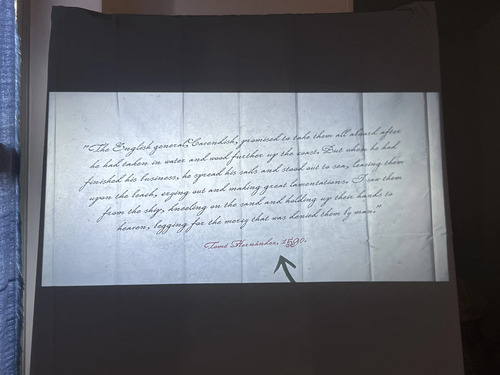 "The English general, Cavendish, promised to take them all aboard after
he had taken in water and wood further up the coast. But when he had
finished his business, he spread his sails and stood out to sea, leaving them
upon the beach, crying out and making great lamentations. I saw them
from the ship, kneeling on the sand and holding up their hands to
heaven, begging for the mercy that was denied them by man."
Tomé Hernández, 1590.